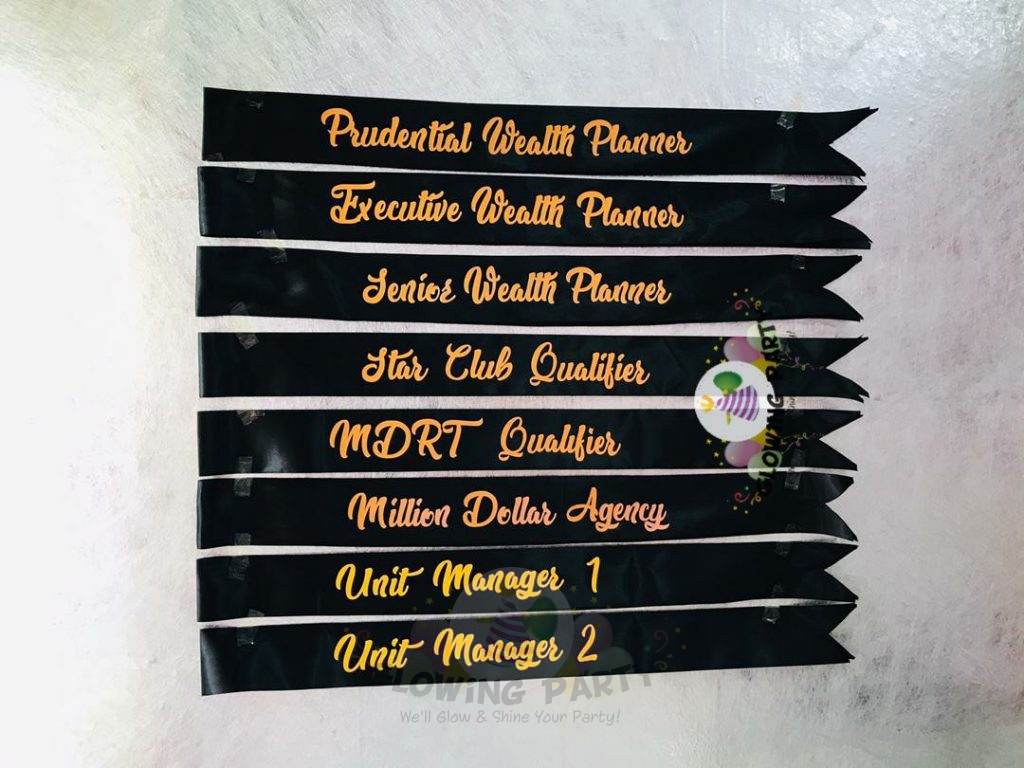 Prudential Wealth Planner
Executive Wealth Planner
Senior Wealth Planner
Star Club Qualifier
MDRT Qualifier
Million Dollar Agency
Unit Manager 1
Unit Manager 2
GLOWING PARTY
LOWING PARTY
We'll Glow & Shine Your Party!